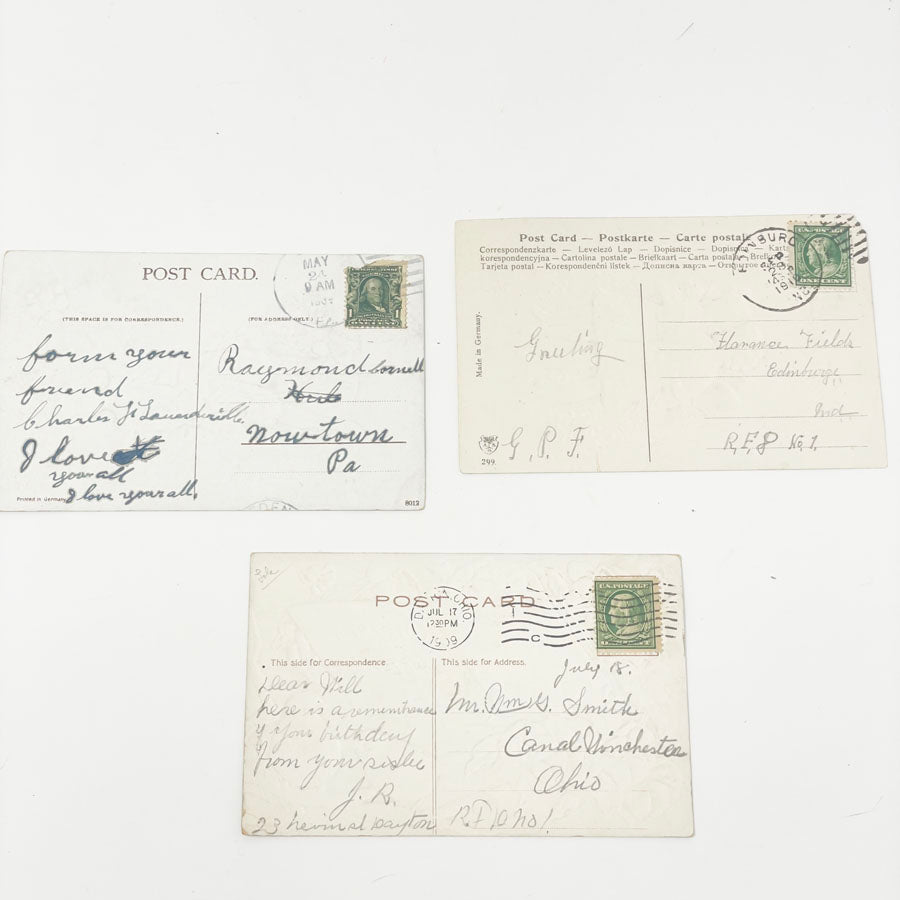 POST CARD.
MAY
9 AM
(THIS SPACE IS FOR CORRESPONDENCE.)
(FOR ADDRESS ONLY.)
form your
friend
Charles
I love
your all
I love your all.
Printed in Germany
Raymond Cornell
Newtown
Pa
8012
Post Card — Postkarte — Carte postale
Correspondenzkarte — Levelező Lap — Dopisnice — Dopisn
korespondencyjna — Cartolina postale — Briefkaart — Carta postal
Tarjeta postal — Korespondenční lístek — Дописна карта — Открытое
U.S. POSTAGE
ONE CENT
Made in Germany.
Greeting
G. P. F.
299.
Florance Fields
Edinburge
Ind
R.F.D No. 1.
POST CARD
JUL 17
12 30 PM
1909
C
U.S. POSTAGE
This side for Correspondence.
This side for Address.
Dear Will
here is a rememhrance
of your birthday
from your sister
J. R.
23 Dayton
July 18.
Mr. Wm G. Smith
Canal Winchester
Ohio
R F D no 1